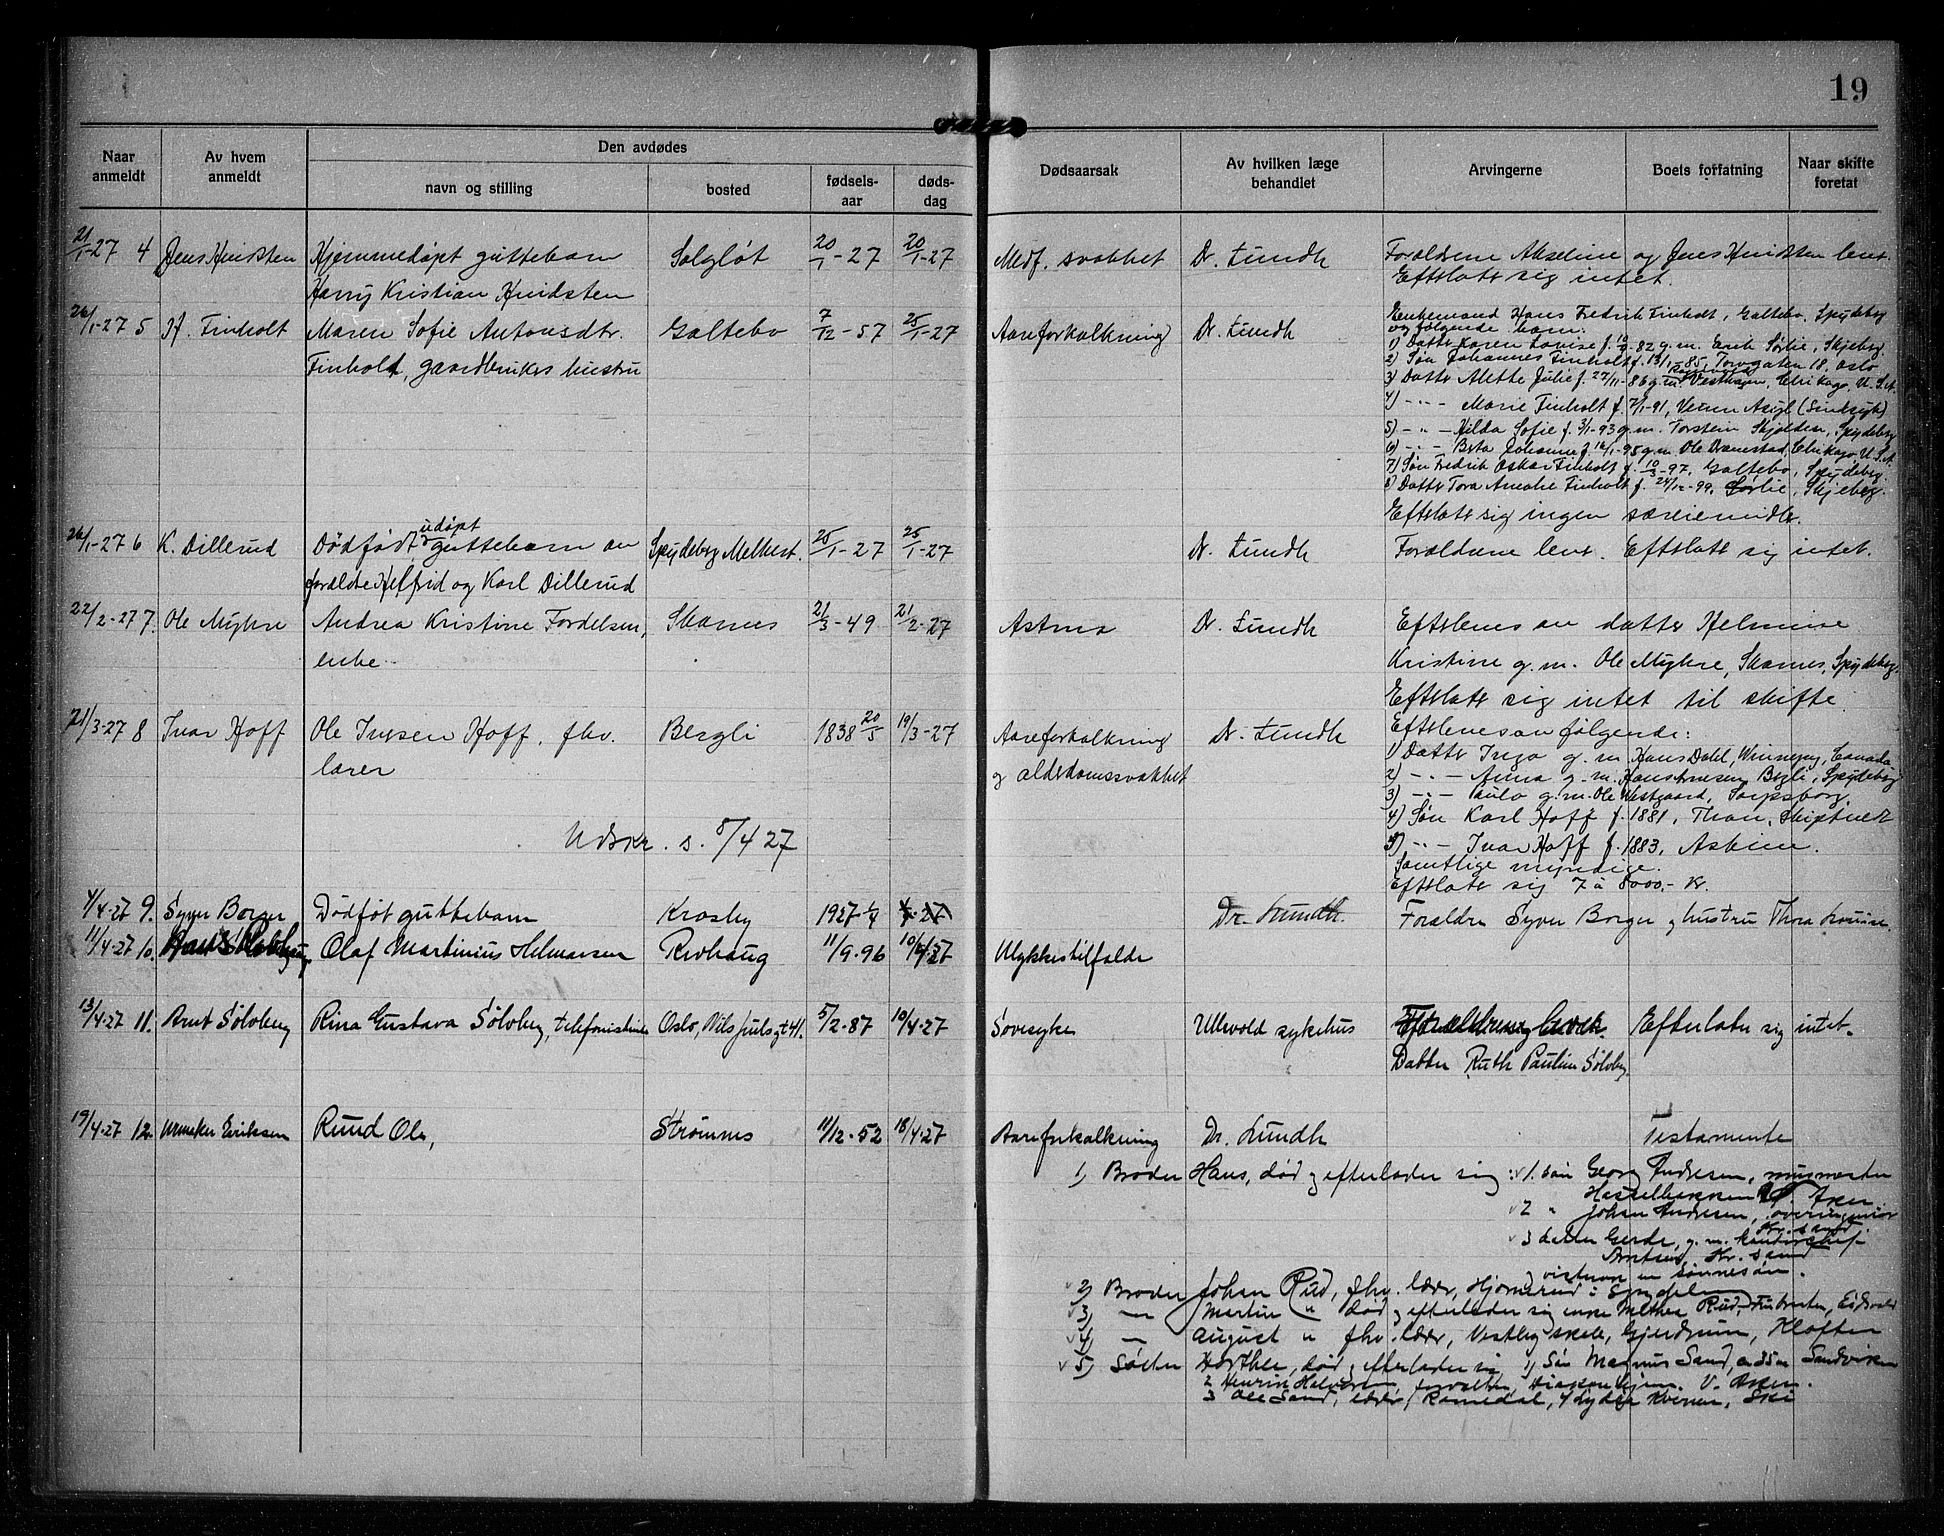 19
Naar anmeldt
Av hvem anmeldt
Den avdødes
navn og stilling
bosted
fødselsaar
dødsdag
Dødsaarsak
Av hvilken læge behandlet
Arvingerne
Boets forfatning
Naar skifte foretat
21/1-27 4 Jens Hvidsten Hjemmedøpt guttebarn Solgløt 20/1-27 20/1-27 Medf. svakhet Dr. Lundh Forældrene Akseline og Jens Hvidsten lever.
Harry Kristian Hvidsten Efterlatt sig intet.
26/1-27 5 H. Finholt Maren Sofie Antonsdtr. Galtebo 7/12-57 25/1-27 Aareforkalkning Dr. Lundh Enkemand Hans Fredrik Finholt, Galtebo, Spydeberg
Finholt, gaardbrukers hustru og følgende barn:
1) Datter Karen Lovise f. 10/9-82 g.m. Erik Sørlie, Skjeberg.
2) Søn Johannes Finholt f. 13/1-85, Torvgaten 18, Oslo
3) Datter Alette Julie f. 27/11-86 g.m. Vesthagen, Chikago, U.S.A.
4) -"- Marie Finholt f. 7/1-91, Veum Asyl (Sindsyk)
5) -"- Hilda Sofie f. 3/1-93 g.m. Torstein Skjolden, Spydeberg
6) -"- Berta Johanne f. 16/1-95 g.m. Ole Chikago U.S.A.
7) Søn Fredrik Oskar Finholt f. 10/3-97, Galtebo, Spydeberg.
8) Datter Tora Amalie Finholt f. 24/12-99, Sørlie, Skjeberg.
Efterlatt sig ingen særeiemidler.
26/1-27 6 K. Dillerud Dødfødt udøpt guttebarn av Spydeberg Melkest. 25/1-27 25/1-27 Dr. Lundh Forældrene lever. Efterlatt sig intet.
forældre Helfrid og Karl Dillerud
22/2-27 7. Ole Myhre Andrea Kristine Fordelsen, Skarnes 21/3-49 21/2-27 Astma Dr. Lundh Efterleves av datter Helmine
enke Kristine g.m. Ole Myhre, Skarnes, Spydeberg.
Efterlatt sig intet til skifte.
21/3-27 8 Ivar Hoff Ole Iversen Hoff, fhv. Bergli 1838 20/5 19/3-27 Aareforkalkning Dr. Lundh Efterleves av følgende:
lærer og alderdomssvakhet 1) Datter Inga g.m. Hans Dahl, Winnepeg, Canada
2) -"- Anna g.m. Hans Bergli, Spydeberg
3) -"- Paula g.m. Ole Westgaard, Sarpsborg.
4) Søn Karl Hoff f. 1881, Skiptvet
5) -"- Ivar Hoff f. 1883, Askim.
Utskr. s. 8/4 27
Samtlige myndige.
Efterlatt sig 7 à 8000,- kr.
4/4-27 9. Syver Borger Dødføt guttebarn Krosby 1927 1/4 Dr. Lundh. Forældre Syver Borger og hustru Thora Louise.
11/4-27 10. Olaf Martinius Helmersen Rivhaug 11/9.96 10/4.27 Ulykkestilfælde
13/4-27 11. Arnt Sølvberg Rina Gustava Sølvberg, telefonistinde Oslo, Nils Juls gt 41. 5/2-87 10/4-27 Sovesyke Ullevold sykehus Efterlater sig intet.
Datter Ruth Pauline Sølvberg.
19/4-27 12. Eriksen Ruud Ole, Strømnes 11/12-52 18/4-27 Aareforkalkning Dr. Lundh Testamente
1) Broder Hans, død og efterlader sig: 1. søn Georg Andresen, Hasselbakken V. Aker
2 " Johan Andresen, overingeniør Kr.sand
3 datter Gerda, g.m. Kr.sand
2) Broder Johan Rud, fhv. lærer,
3) — Martin " død og efterlader sig enke Mathea Rud, Eidsvold
4) — August " fhv. lærer, Vestby skole, Gjerdrum, Kløften
5) Søster død og efterlader sig 1) Søn Magnus Sand, Sandviken
2 Henrik Halvorsen, Diakonhjem. V. Aker.
3 Ole Sand, lærer, Romedal, 4 Ski